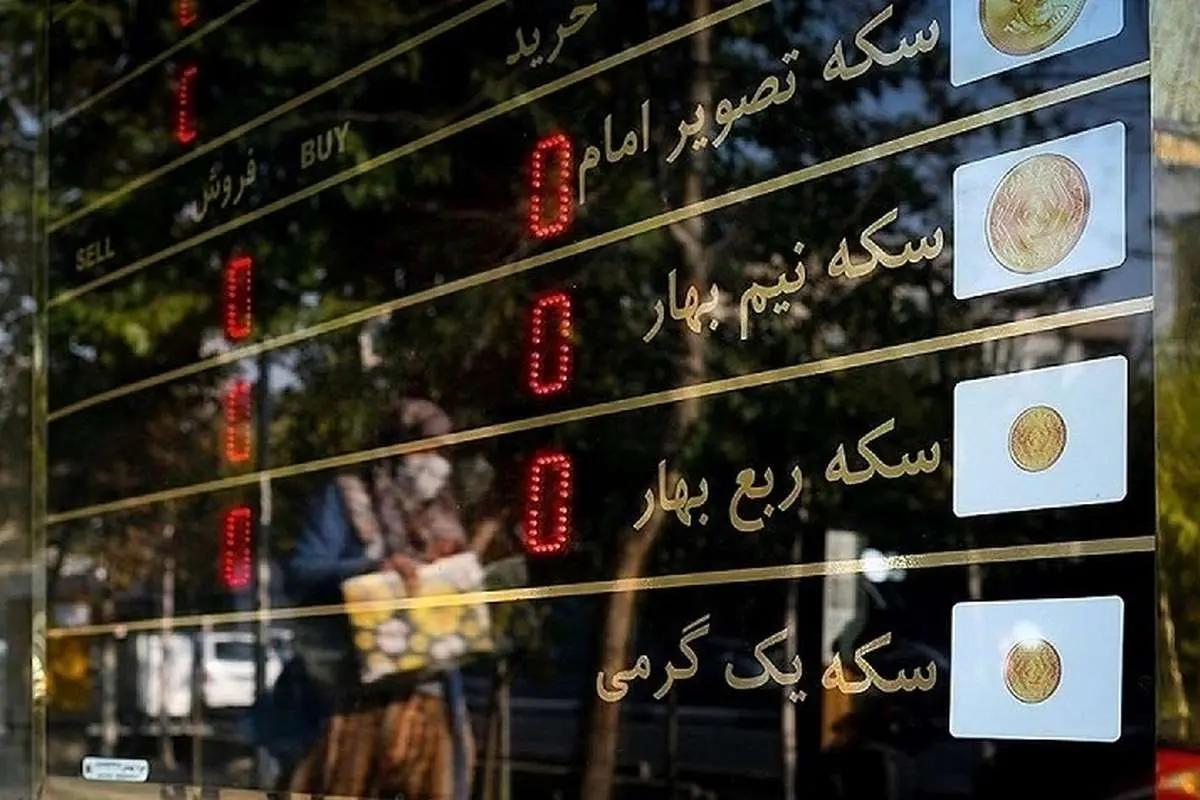 خرید
فروش
BUY
SELL
سکه تصویر امام 0 0
سکه نیم بهار 0 0
سکه ربع بهار 0 0
سکه یک گرمی